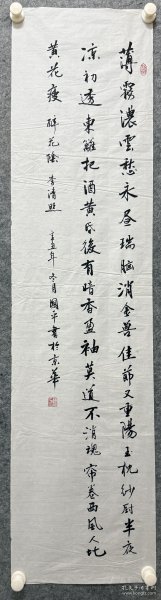 薄霧濃雲愁永昼瑞脑消金獸佳節又重陽玉枕紗厨半夜
凉初透東籬把酒黄昏後有暗香盈袖莫道不消魂帘卷西風人比
黄花瘦 醉花陰 李清照 辛丑年冬月國平書於京華